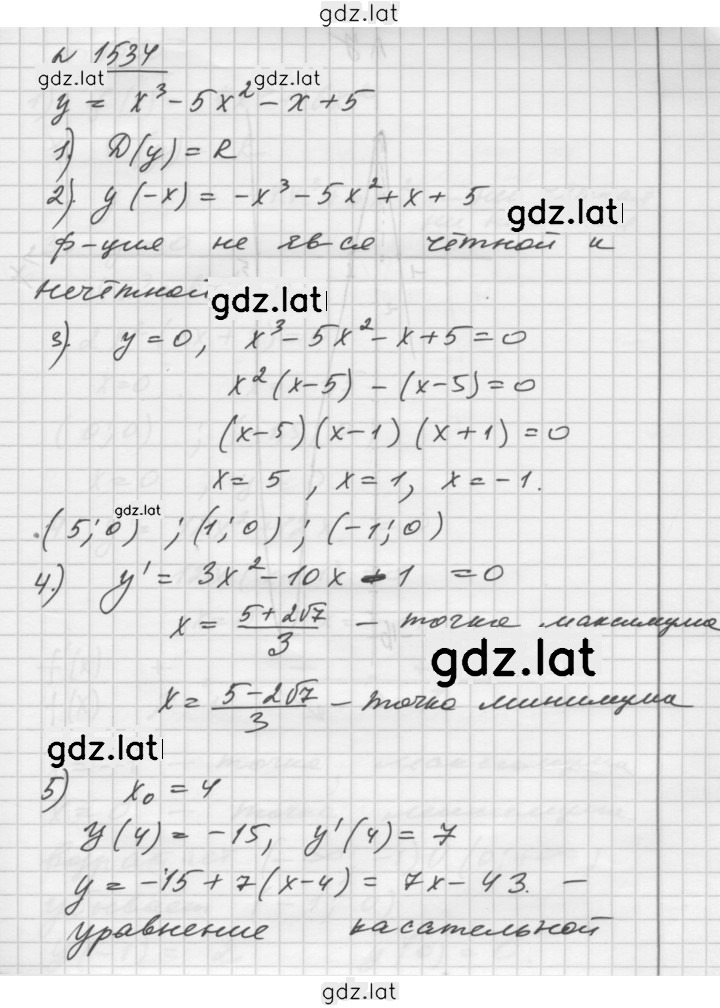 gdz.lat
№ 1534
gdz.lat gdz.lat
y = x³ - 5x² - x + 5
1) D(y) = R
2). y(-x) = -x³ - 5x² + x + 5
gdz.lat
ф-ция не яв-ся чётной и
нечётной
gdz.lat
3). y = 0, x³ - 5x² - x + 5 = 0
x²(x-5) - (x-5) = 0
(x-5)(x-1)(x+1) = 0
x = 5, x = 1, x = -1.
gdz.lat
(5; 0) ; (1; 0) ; (-1; 0)
4.) y' = 3x² - 10x - 1 = 0
x = (5+2√7)/3 - точка максимума
gdz.lat
x = (5-2√7)/3 - точка минимума
gdz.lat
5) x₀ = 4
y(4) = -15, y'(4) = 7
y = -15 + 7(x-4) = 7x - 43. -
уравнение касательной
gdz.lat